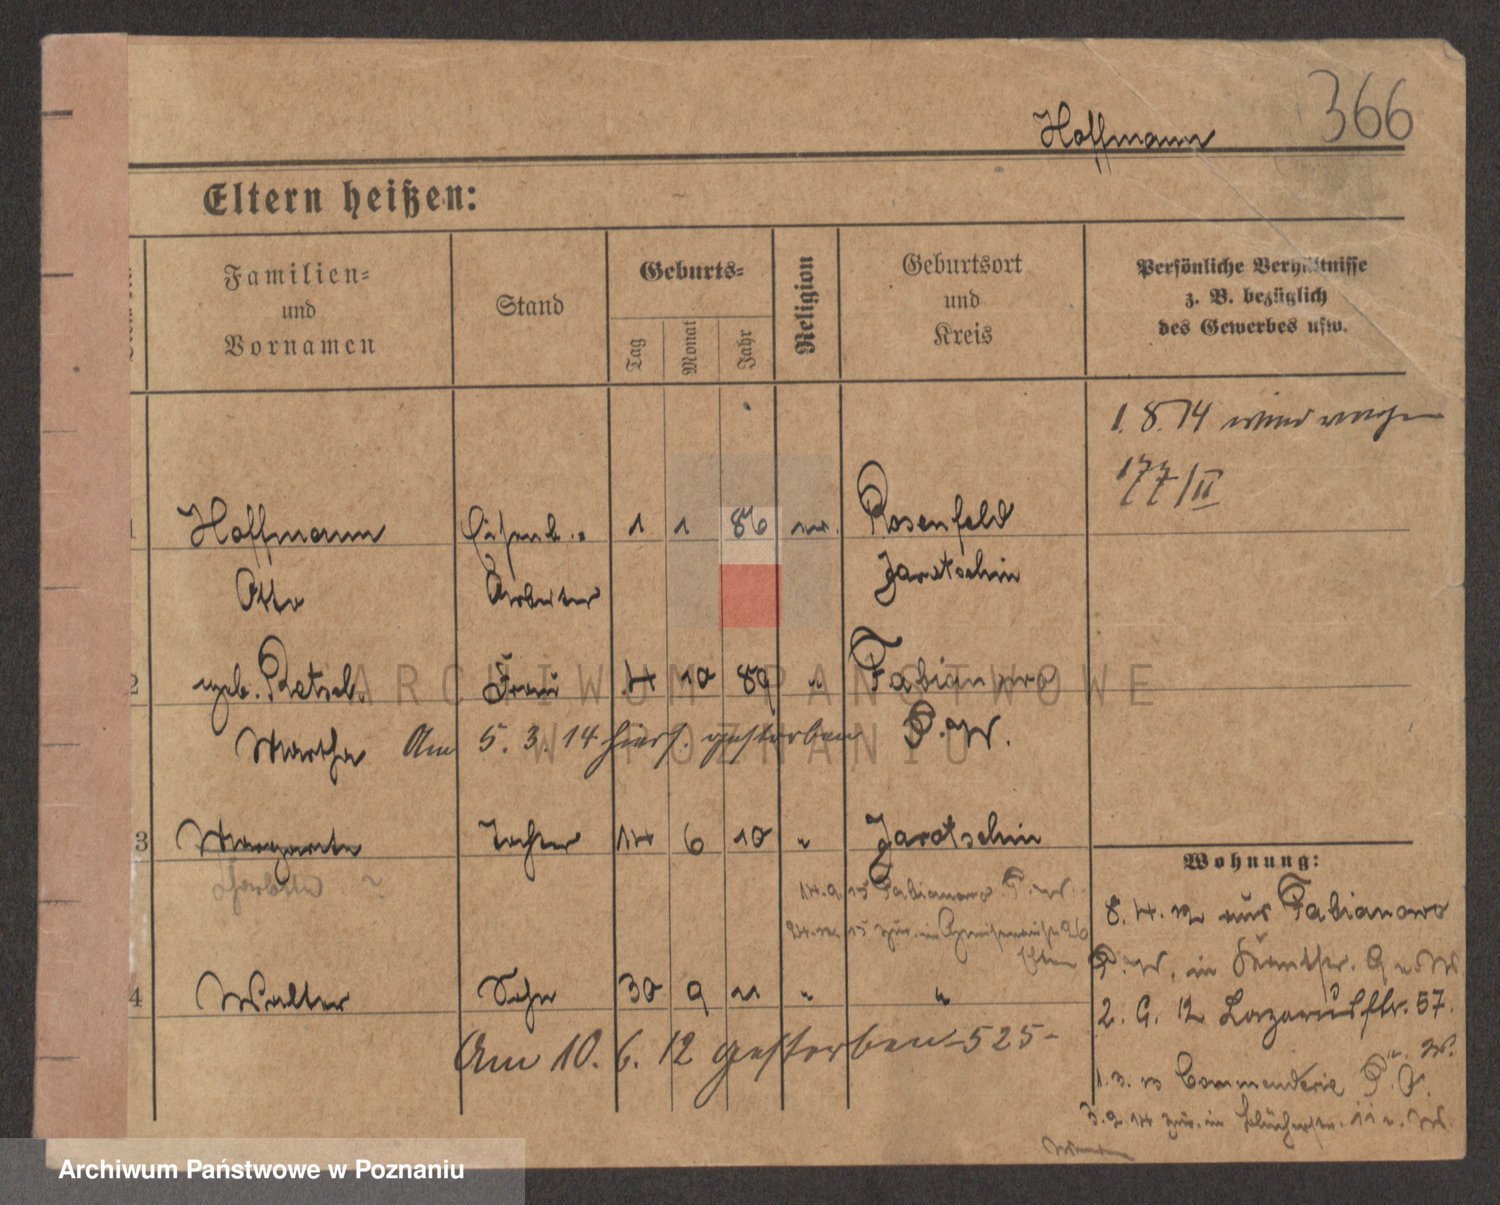 366
Hoffmann
Eltern heißen:
Familien=
und
Vornamen
Stand
Geburts=
Tag
Monat
Jahr
Religion
Geburtsort
und
Kreis
Persönliche Verhältnisse
z. B. bezüglich
des Gewerbes usw.
1. 8. 14
177/II
1 Hoffmann Eisenb.= 1 1 86 ev. Rosenfeld
Otto Arbeiter Jarotschin
2 geb. Retsch Frau 4 10 89 " Fabianowo
Martha Am 5. 3. 14 hiers. gestorben P. W.
3 Margarete Tochter 14 6 10 " Jarotschin
Wohnung:
14. 9. 13 Fabianowo P. W.
8. 4. 12 aus Fabianowo
zur. in Gneisenaustr. 26
Eltern
P. W. in
4 Walter Sohn 30 9 11 " "
2. 9. 12 Lazarusstr. 57.
Am 10. 6. 12 gestorben -525-
1. 3. 13 Commenderie P. O.
3. 2. 14 zur. in Blücherstr. 11
ARCHIWUM PAŃSTWOWE
W POZNANIU
Archiwum Państwowe w Poznaniu